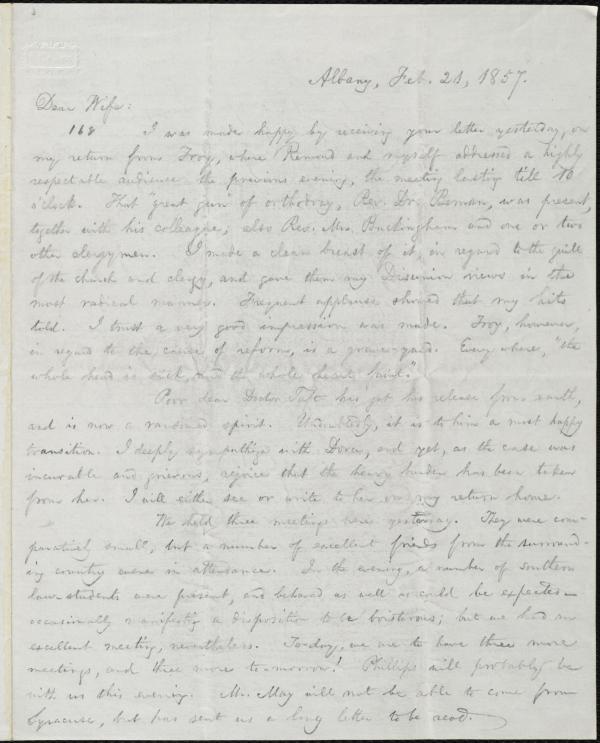 Albany, Feb. 21, 1857.
Dear Wife:
168 I was made happy by receiving your letter yesterday, on
my return from Troy, where Remond and myself addressed a highly
respectable audience the previous evening, the meeting lasting till 10
o'clock. That "great gun of orthodoxy," Rev. Dr. Beman, was present,
together with his colleague; also Rev. Mr. Buckingham and one or two
other clergymen. I made a clean breast of it, in regard to the guilt
of the church and clergy, and gave them my Disunion views in the
most radical manner. Frequent applause showed that my hits
told. I trust a very good impression was made. Troy, however,
in regard to the cause of reform, is a grave-yard. Every where, "the
whole head is sick, and the whole heart faint."
Poor dear Doctor has got his release from earth,
and is now a ransomed spirit. Undoubtedly, it is to him a most happy
transition. I deeply sympathize with and yet, as the case was
incurable and grievous, rejoice that the heavy burden has been taken
from her. I will either see or write to her on my return home.
We held three meetings here yesterday. They were com-
paratively small, but a number of excellent friends from the surround-
ing country were in attendance. In the evening, a number of southern
law-students were present, and behaved as well as could be expected—
occasionally manifesting a disposition to be boisterous; but we had an
excellent meeting, nevertheless. To-day, we are to have three more
meetings, and three more to-morrow! Phillips will probably be
with us this evening. Mr. May will not be able to come from
Syracuse, but has sent us a long letter to be read.